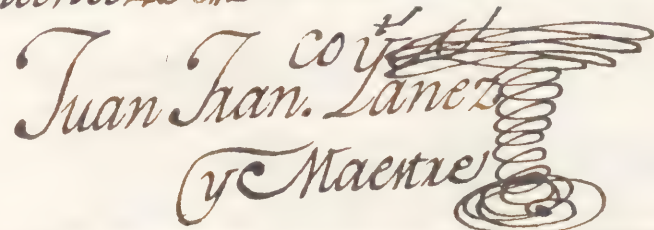 Juan Fran.co Yanez
y Maestre